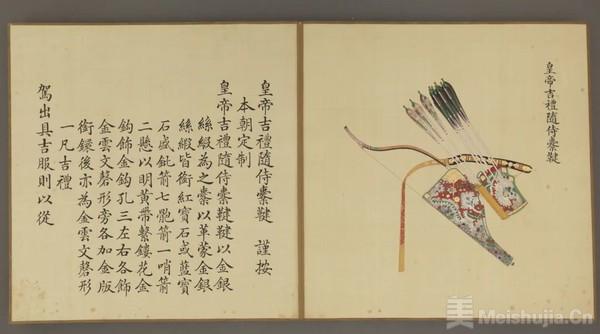 皇帝吉禮隨侍櫜鞬
皇帝吉禮隨侍櫜鞬 謹按
本朝定制
皇帝吉禮隨侍櫜鞬鞬以金銀
絲緞為之櫜以革蒙金銀
絲緞皆銜紅寶石或藍寶
石盛鈚箭七骲箭一哨箭
二懸以明黃帶繫鏤花金
鈎飾金鈎孔三左右各飾
金雲文磬形旁各加金版
銜後亦為金雲文磬形
一凡吉禮
駕出具吉服則以從
美 Meishujia.Cn